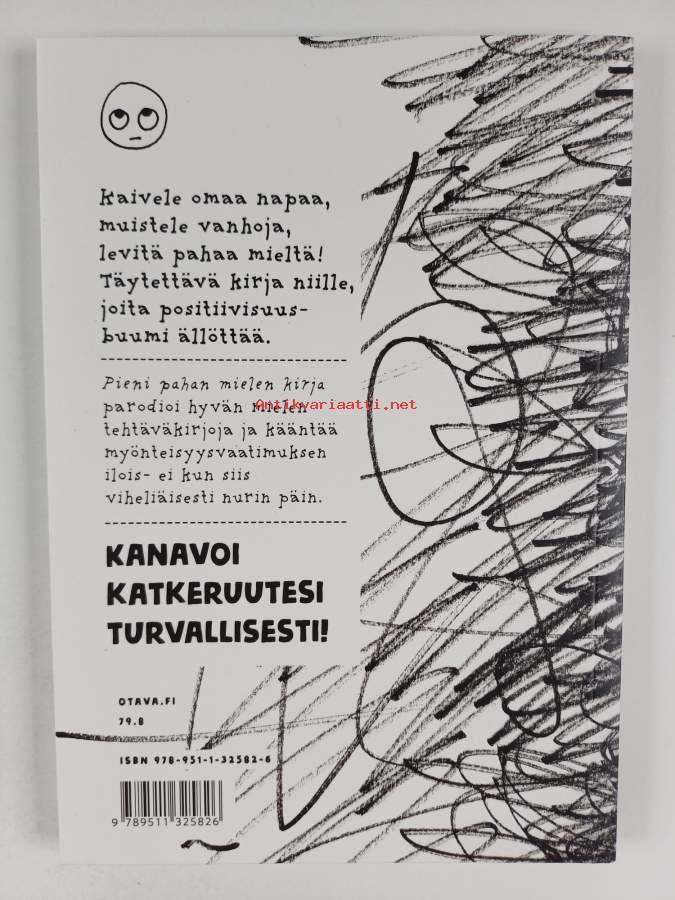 Kaivele omaa napaa,
muistele vanhoja,
levitä pahaa mieltä!
Täytettävä kirja niille,
joita positiivisuus-
buumi ällöttää.
Pieni pahan mielen kirja
parodioi hyvän mielen
Antikvariaatti.net
tehtäväkirjoja ja kääntää
myönteisyysvaatimuksen
ilois- ei kun siis
viheliäisesti nurin päin.
KANAVOI
KATKERUUTESI
TURVALLISESTI!
OTAVA.FI
79.8
ISBN 978-951-1-32582-6
9 789511 325826